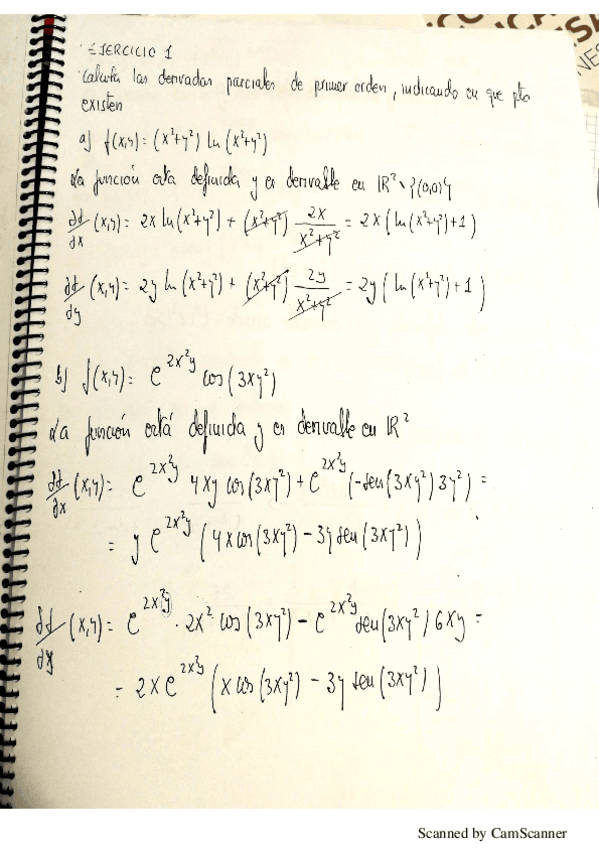 EJERCICIO 1
Calcula las derivadas parciales de primer orden, indicando en que pto
existen
a) f(x,y) = (x²+y²) ln(x²+y²)
La función está definida y es derivable en ℝ² \ {(0,0)}
∂f/∂x (x,y) = 2x ln(x²+y²) + (x²+y²) 2x/(x²+y²) = 2x(ln(x²+y²)+1)
∂f/∂y (x,y) = 2y ln(x²+y²) + (x²+y²) 2y/(x²+y²) = 2y(ln(x²+y²)+1)
b) f(x,y) = e^(2x²y) cos(3xy²)
La función está definida y es derivable en ℝ²
∂f/∂x (x,y) = e^(2x²y) 4xy cos(3xy²) + e^(2x²y) (-sen(3xy²) 3y²) =
= y e^(2x²y) (4x cos(3xy²) - 3y sen(3xy²))
∂f/∂y (x,y) = e^(2x²y) · 2x² cos(3xy²) - e^(2x²y) sen(3xy²) 6xy =
= 2x e^(2x²y) (x cos(3xy²) - 3y sen(3xy²))
Scanned by CamScanner